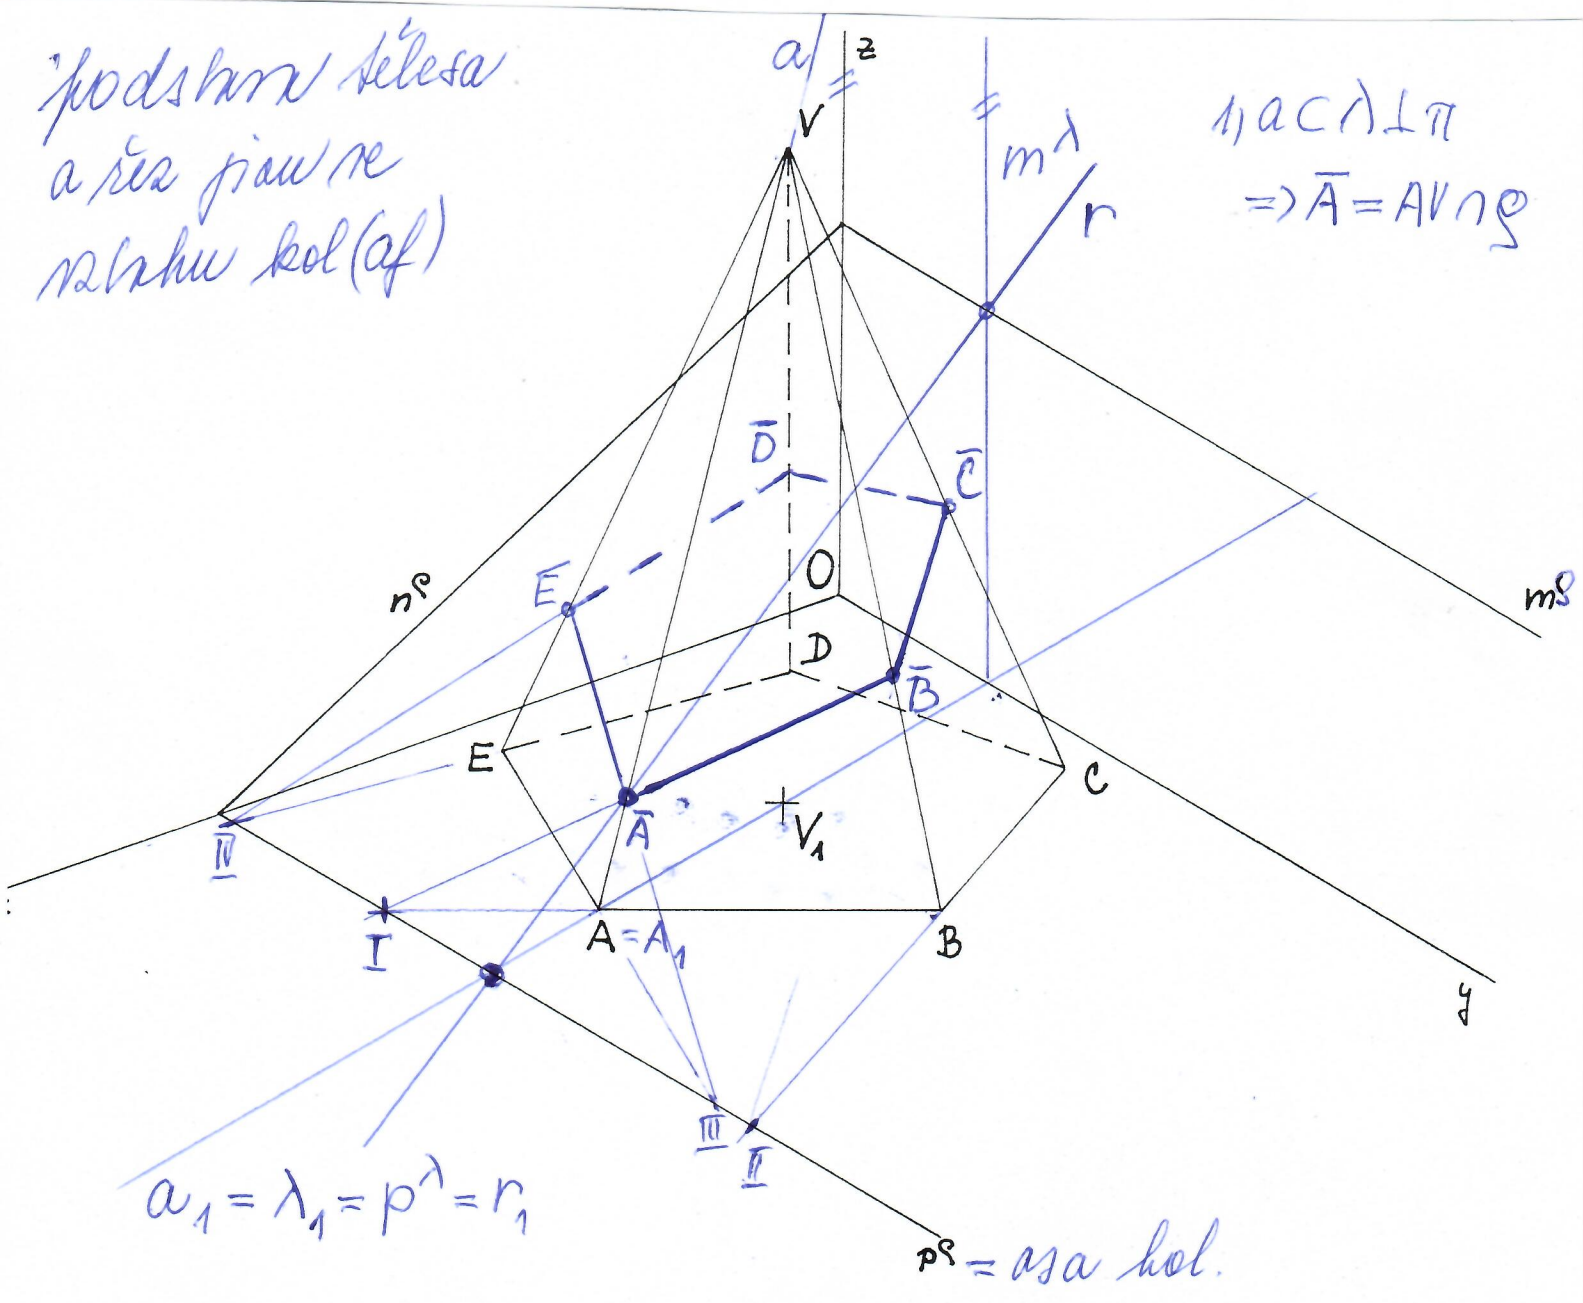 podstava tělesa
a řez jsou ve
vztahu kol(af)
a
z
V
m^λ
r
1, a ⊂ λ ⊥ π
=> A̅ = AV ∩ ρ
D̅
C̅
n^ρ
E̅
O
m^ρ
D
B̅
E
C
IV
A̅
V₁
I
A = A₁
B
y
III
II
a₁ = λ₁ = p^λ = r₁
p^ρ = osa kol.